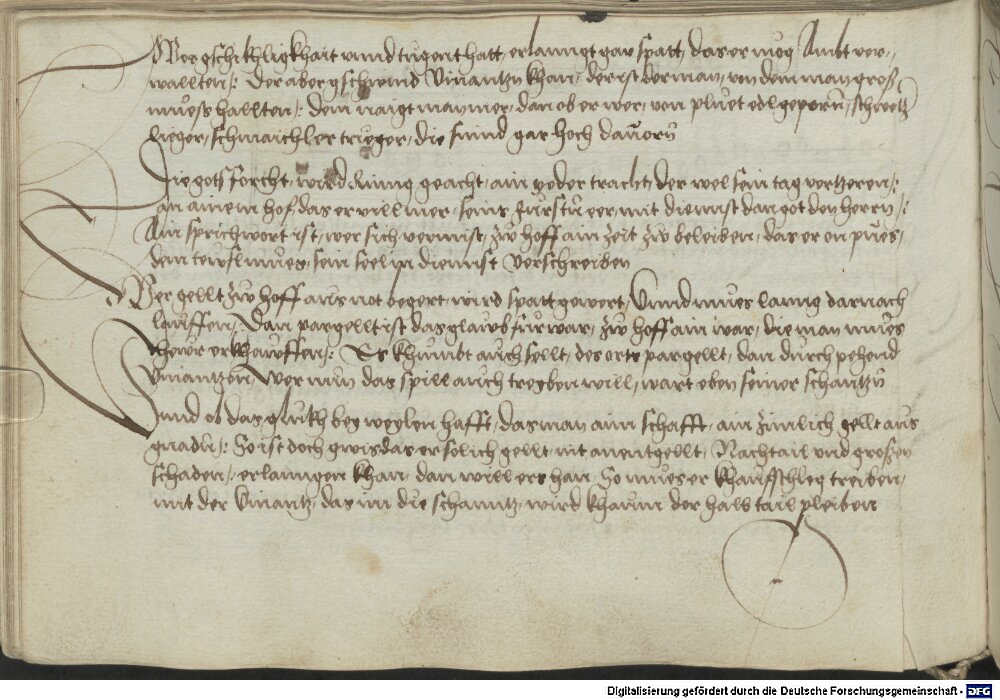 Wer gschikhligkhait unnd tugent hatt, erlanngt gar spatt, das er mög Ambt ver-
wallten /: Der aber gschwind Vinantzn khan, der ist der man, von dem man groß
mueß hallten /: dem naigt man mer, dan ob er wer, von pluet edl geporn, schwetz
lieger, schmaichler trieger, die sinnd gar hoch davorn
Die gots forcht, wird ring geacht, ain yeder tracht, der wol sein tag vertzeren /:
an ainem hof, das er vill mer, seins fürstn eer, mit diennst dan got den herrn /:
Ain sprichwort ist, wer sich vermist, zw hoff ain zeit zw beleiben, das er on pues,
dem tewfl mues, sein seel in diennst verschreiben
Wer gellt zw hoff aus not begert, wird spatt gewert, Unnd mues lanng darnach
lauffen /: Dan par gellt ist das glaub fur war, zw hoff ain war, die man mues
thewr erkhauffen /: Es khumbt auch sellt, des orts par gellt, dan durch pehend
Vinantzen, Wer nun das spill auch treyben will, wart eben seiner schantzn
Unnd ob das glukh bey weylen hafft, das man aim schafft, ain zimlich gellt aus
gnadn /: So ist doch gwis das er solich gellt, nit an entgellt, Nachtail und großen
schaden /: erlanngen khan, dan will ers han So mues er khauffschleg treiben,
mit der Vinantz, das im die schanntz, wird khaum der halb tail pleiben
Digitalisierung gefördert durch die Deutsche Forschungsgemeinschaft - DFG